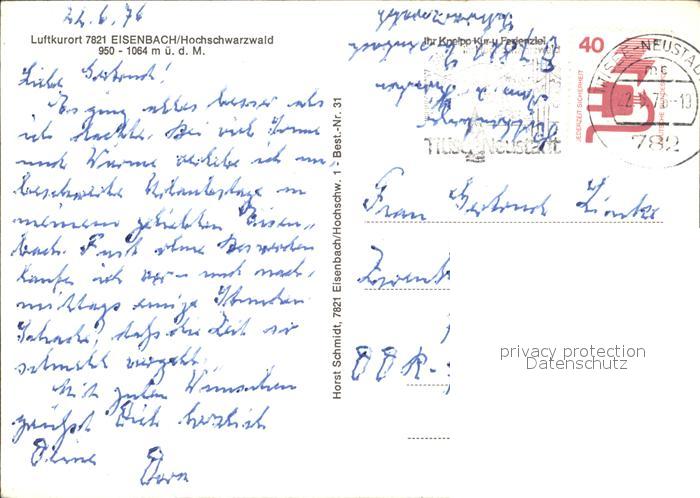 22.6.76
Luftkurort 7821 EISENBACH/Hochschwarzwald
950 - 1064 m ü. d. M.
Liebe Gertrud!
Es ging alles besser als
ich dachte. Bei viel Sonne
und Wärme verlebe ich un-
beschwerte Urlaubstage in
meinem geliebten Eisen-
bach. Fast ohne Beschwerden
laufe ich vor- und nach-
mittags einige Stunden
Schade, daß die Zeit so
schnell vergeht.
Mit guten Wünschen
grüßt Dich herzlich
Deine Dora
Horst Schmidt, 7821 Eisenbach/Hochschw. 1 - Best.-Nr. 31
Ihr Kneipp-Kur-u. Ferienziel
Titisee-Neustadt
40
JEDERZEIT SICHERHEIT
TITISEE-NEUSTADT
mc
782
Frau Gertrud
DDR-
privacy protection
Datenschutz